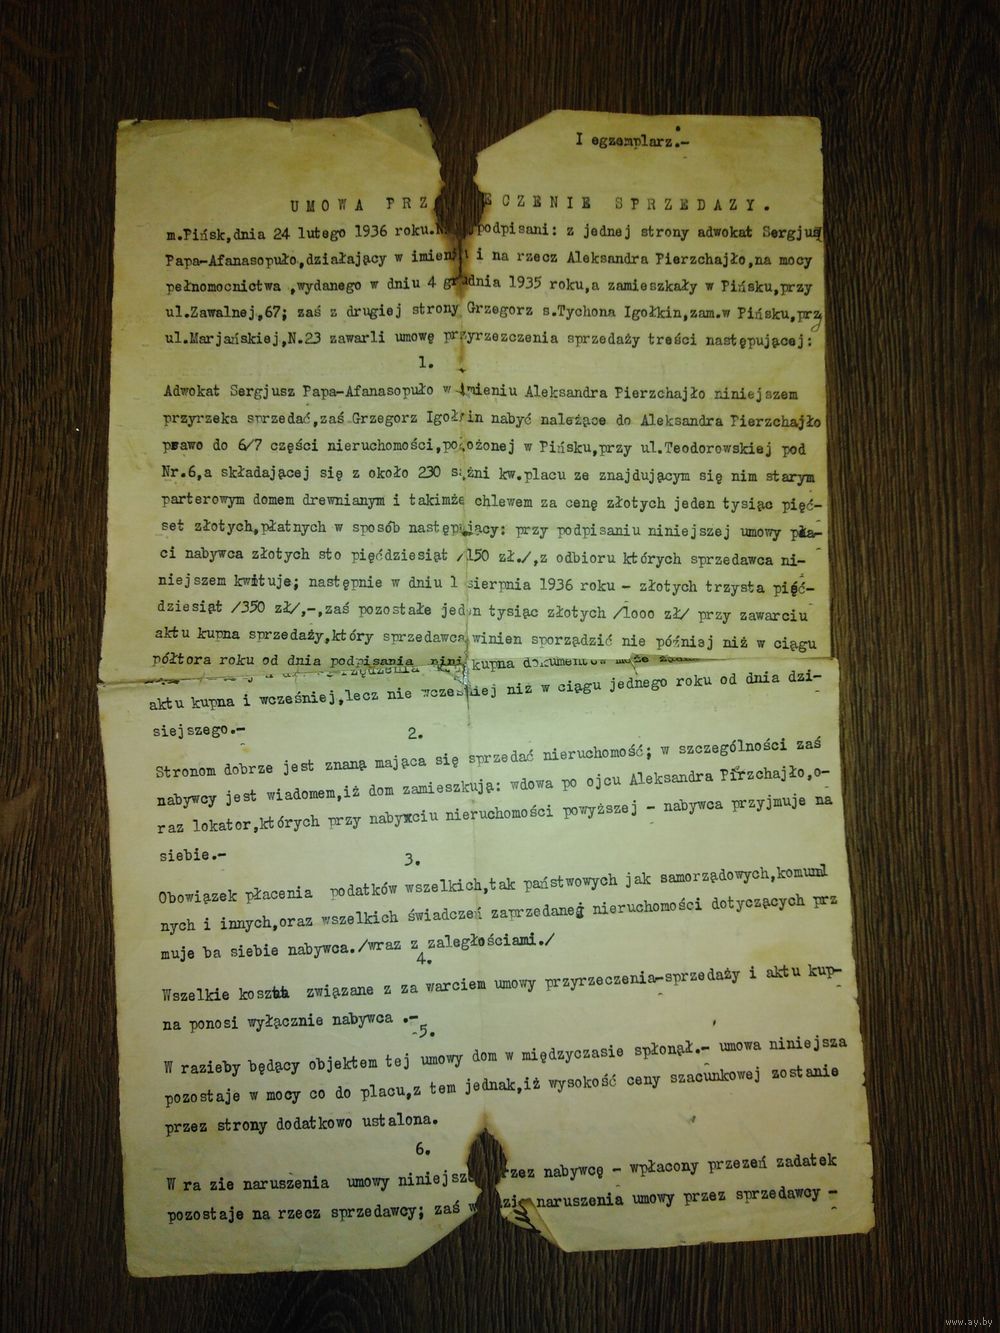 I egzemplarz.-
UMOWA PRZ ECZENIE SPRZEDAZY.
m.Pińsk,dnia 24 lutego 1936 roku. podpisani: z jednej strony adwokat Sergjusz
Papa-Afanasopuło,działający w imieniu i na rzecz Aleksandra Pierzchajło,na mocy
pełnomocnictwa ,wydanego w dniu 4 grudnia 1935 roku,a zamieszkały w Pińsku,przy
ul.Zawalnej,67; zaś z drugiej strony Grzegorz s.Tychona Igołkin,zam.w Pińsku,przy
ul.Marjańskiej,N.23 zawarli umowę przyrzezczenia sprzedaży treści następującej:
1.
Adwokat Sergjusz Papa-Afanasopuło w imieniu Aleksandra Pierzchajło niniejszem
przyrzeka sprzedać,zaś Grzegorz Igołkin nabyć należące do Aleksandra Pierzchajło
prawo do 6/7 części nieruchomości,położonej w Pińsku,przy ul.Teodorowskiej pod
Nr.6,a składającej się z około 230 sążni kw.placu ze znajdującym się nim starym
parterowym domem drewnianym i takimże chlewem za cenę złotych jeden tysiąc pięć-
set złotych,płatnych w sposób następujący: przy podpisaniu niniejszej umowy pła-
ci nabywca złotych sto pięćdziesiąt /150 zł./,z odbioru których sprzedawca ni-
niejszem kwituje; następnie w dniu 1 sierpnia 1936 roku - złotych trzysta pięć-
dziesiąt /350 zł/,-,zaś pozostałe jeden tysiąc złotych /1000 zł/ przy zawarciu
aktu kupna sprzedaży,który sprzedawca winien sporządzić nie później niż w ciągu
półtora roku od dnia podpisania kupna dokumentów może
aktu kupna i wcześniej,lecz nie wcześniej niż w ciągu jednego roku od dnia dzi-
siejszego.-
2.
Stronom dobrze jest znaną mająca się sprzedać nieruchomość; w szczególności zaś
nabywcy jest wiadomem,iż dom zamieszkują: wdowa po ojcu Aleksandra Pirzchajło,o-
raz lokator,których przy nabyxciu nieruchomości powyższej - nabywca przyjmuje na
siebie.-
3.
Obowiązek płacenia podatków wszelkich,tak państwowych jak samorządowych,komunal
nych i innych,oraz wszelkich świadczeń zaprzedanej nieruchomości dotyczących prz
muje ba siebie nabywca./wraz z zaległościami./
4.
Wszelkie koszta związane z za warciem umowy przyrzeczenia-sprzedaży i aktu kup-
na ponosi wyłącznie nabywca .-
-5.
W razieby będący objektem tej umowy dom w międzyczasie spłonął.- umowa niniejsza
pozostaje w mocy co do placu,z tem jednak,iż wysokość ceny szacunkowej zostanie
przez strony dodatkowo ustalona.
6.
W ra zie naruszenia umowy niniejsz rzez nabywcę - wpłacony przezeń zadatek
pozostaje na rzecz sprzedawcy; zaś w zie naruszenia umowy przez sprzedawcy -
www.ay.by